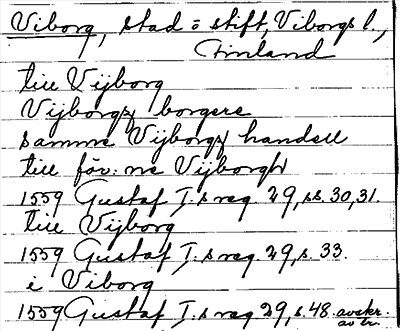 Viborg, stad o stift, Viborgs l.,
Finland
till Vijborg
Vijborgz borgere
samme Vijborgz handell
till för:ne Vijborgh
1559 Gustaf I.s reg. 29, ss. 30, 31.
till Vijborg
1559 Gustaf I.s reg. 29, s. 33.
i Viborg
1559 Gustaf I.s reg 29, s. 48 avskr.
av br.